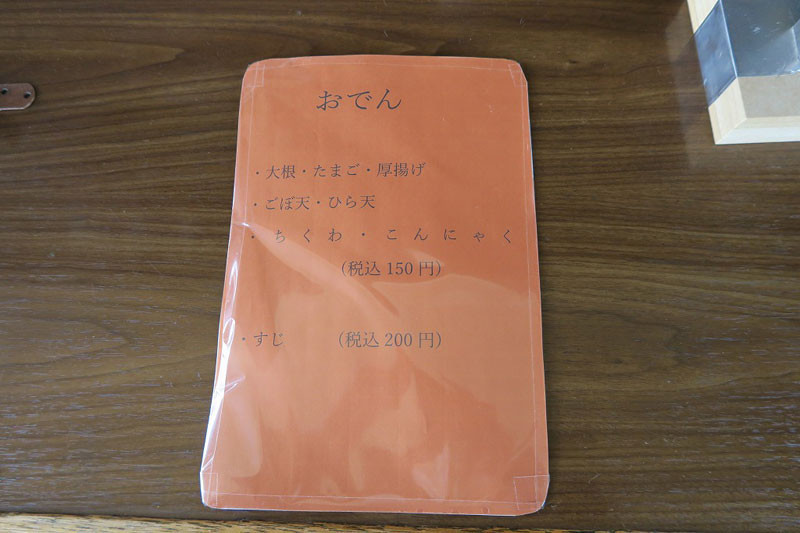 おでん
・大根・たまご・厚揚げ
・ごぼ天・ひら天
・ちくわ・こんにゃく
(税込150円)
・すじ (税込200円)